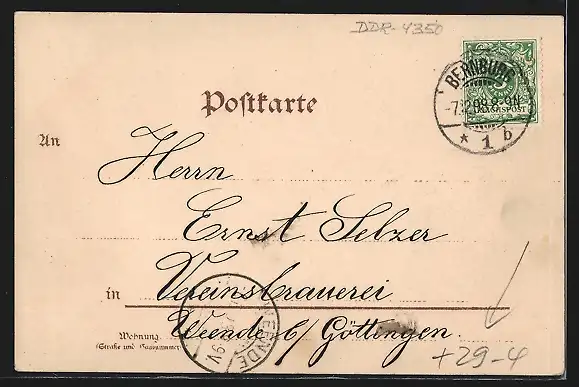 DDR-4350
BERNBURG
-7.12.98.8-9N.
* 1 b
REICHSPOST
Postkarte
An
Herrn
Ernst Selzer
in Vereinsbrauerei
Weende b/ Göttingen.
WEENDE
Wohnung
(Straße und Hausnummer)
+29-4